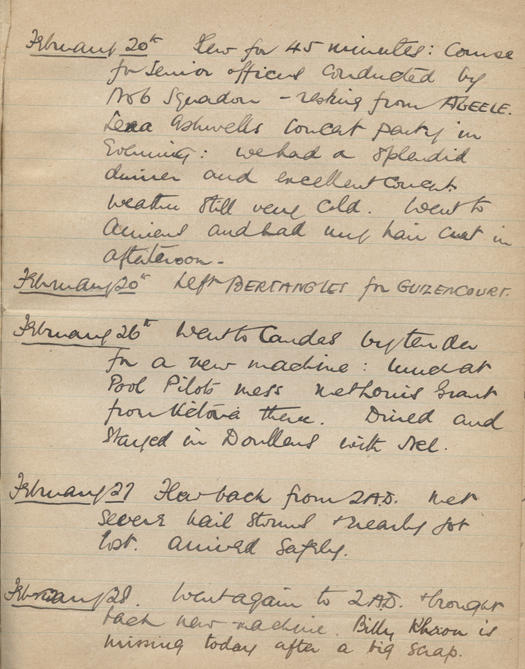 February 20th Flew for 45 minutes: Course
for Senior officers conducted by
No 6 Squadron - resting from ABEELE.
Lena Ashwells Concert party in
Evening: we had a splendid
dinner and excellent concert.
Weather still very cold. Went to
Amiens and had my hair cut in
afternoon -
February 20th Left BERTANGLES for GUIZENCOURT.
February 26th Went to Candas by tender
for a new machine: lunch at
Pool Pilots mess Grant
from Victoria there. Dined and
Stayed in Doullens with
February 27 Flew back from 2 A.D. met
severe hail storms + nearly got
lost. arrived safely.
February 28. Went again to 2 A.D. + brought
back new machine. Billy is
missing today after a big scrap.